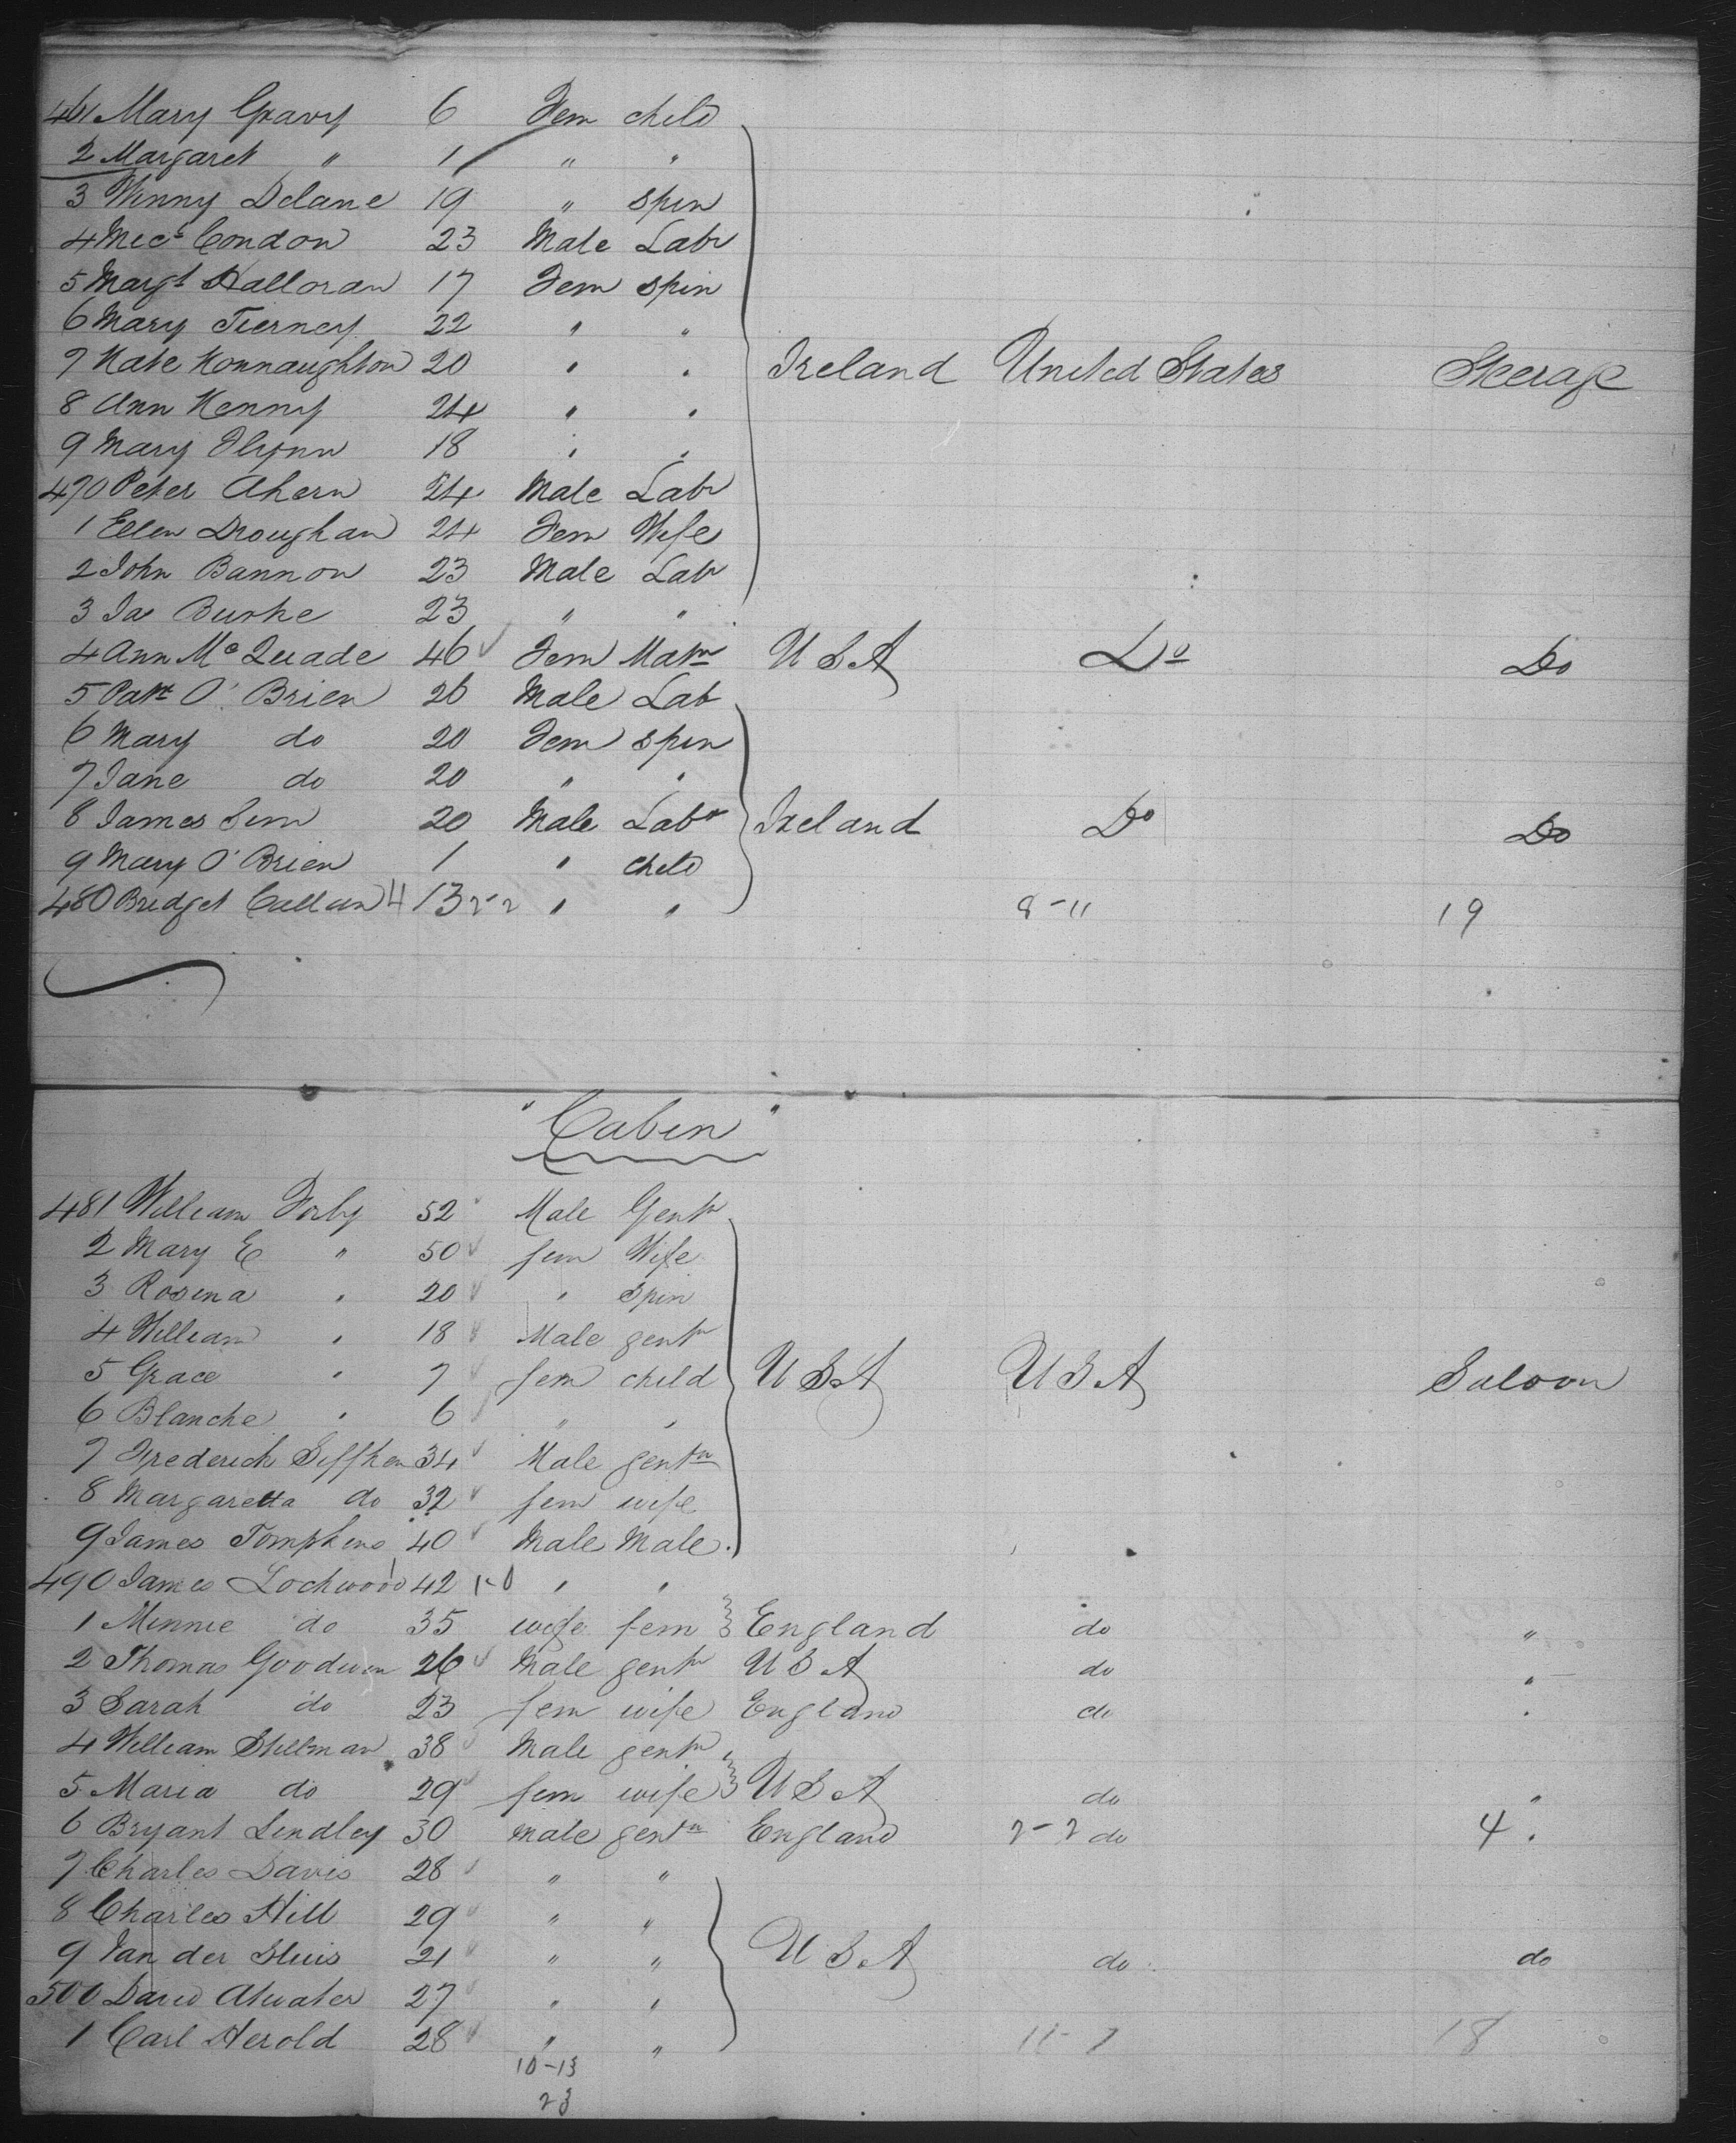 461 Mary Gravy 6 Fem child
2 Margaret " 1 " "
3 Winny Delane 19 " spin
4 Mic Condon 23 Male Labr
5 Margt Halloran 17 Fem spin
6 Mary Tierney 22 " "
7 Kate Konnaughton 20 " " Ireland United States Steerage
8 Ann Kenny 24 " "
9 Mary Flynn 18 " "
470 Peter Ahern 24 Male Labr
1 Ellen Droughan 24 Fem Wife
2 John Bannon 23 Male Labr
3 Jas Burke 23 " "
4 Ann Mc Quade 46 Fem Matn U S A Do Do
5 Patk O'Brien 26 Male Lab
6 Mary do 20 Fem spin
7 Jane do 20 " "
8 James 20 Male Labr Ireland Do Do
9 Mary O'Brien 1 " child
480 Bridget 4 13 2-2 " " 8-11 19
"Cabin"
481 William 52 Male Gentn
2 Mary E " 50 fem Wife
3 Rosina " 20 " Spin
4 William " 18 Male gentn
5 Grace " 7 fem child U S A U S A Saloon
6 Blanche " 6 " "
7 Frederick Siffken 34 Male gentn
8 Margaretta do 32 fem wife
9 James Tompkins 40 Male Male
490 James Lockwood 42 1-0 " "
1 Minnie do 35 wife fem England do "
2 Thomas Goodwin 26 Male gentn U S A do "
3 Sarah do 23 fem wife England do "
4 William Stillman 38 Male gentn
5 Maria do 29 fem wife U S A do "
6 Bryant Lindley 30 Male gentn England 2-2 do 4 "
7 Charles Davis 28 " "
8 Charles Hill 29 " "
9 Van der Sluis 21 " " U S A do do
500 David Atwater 27 " "
1 Carl Herold 28 " " 11-7 18
10-13
23